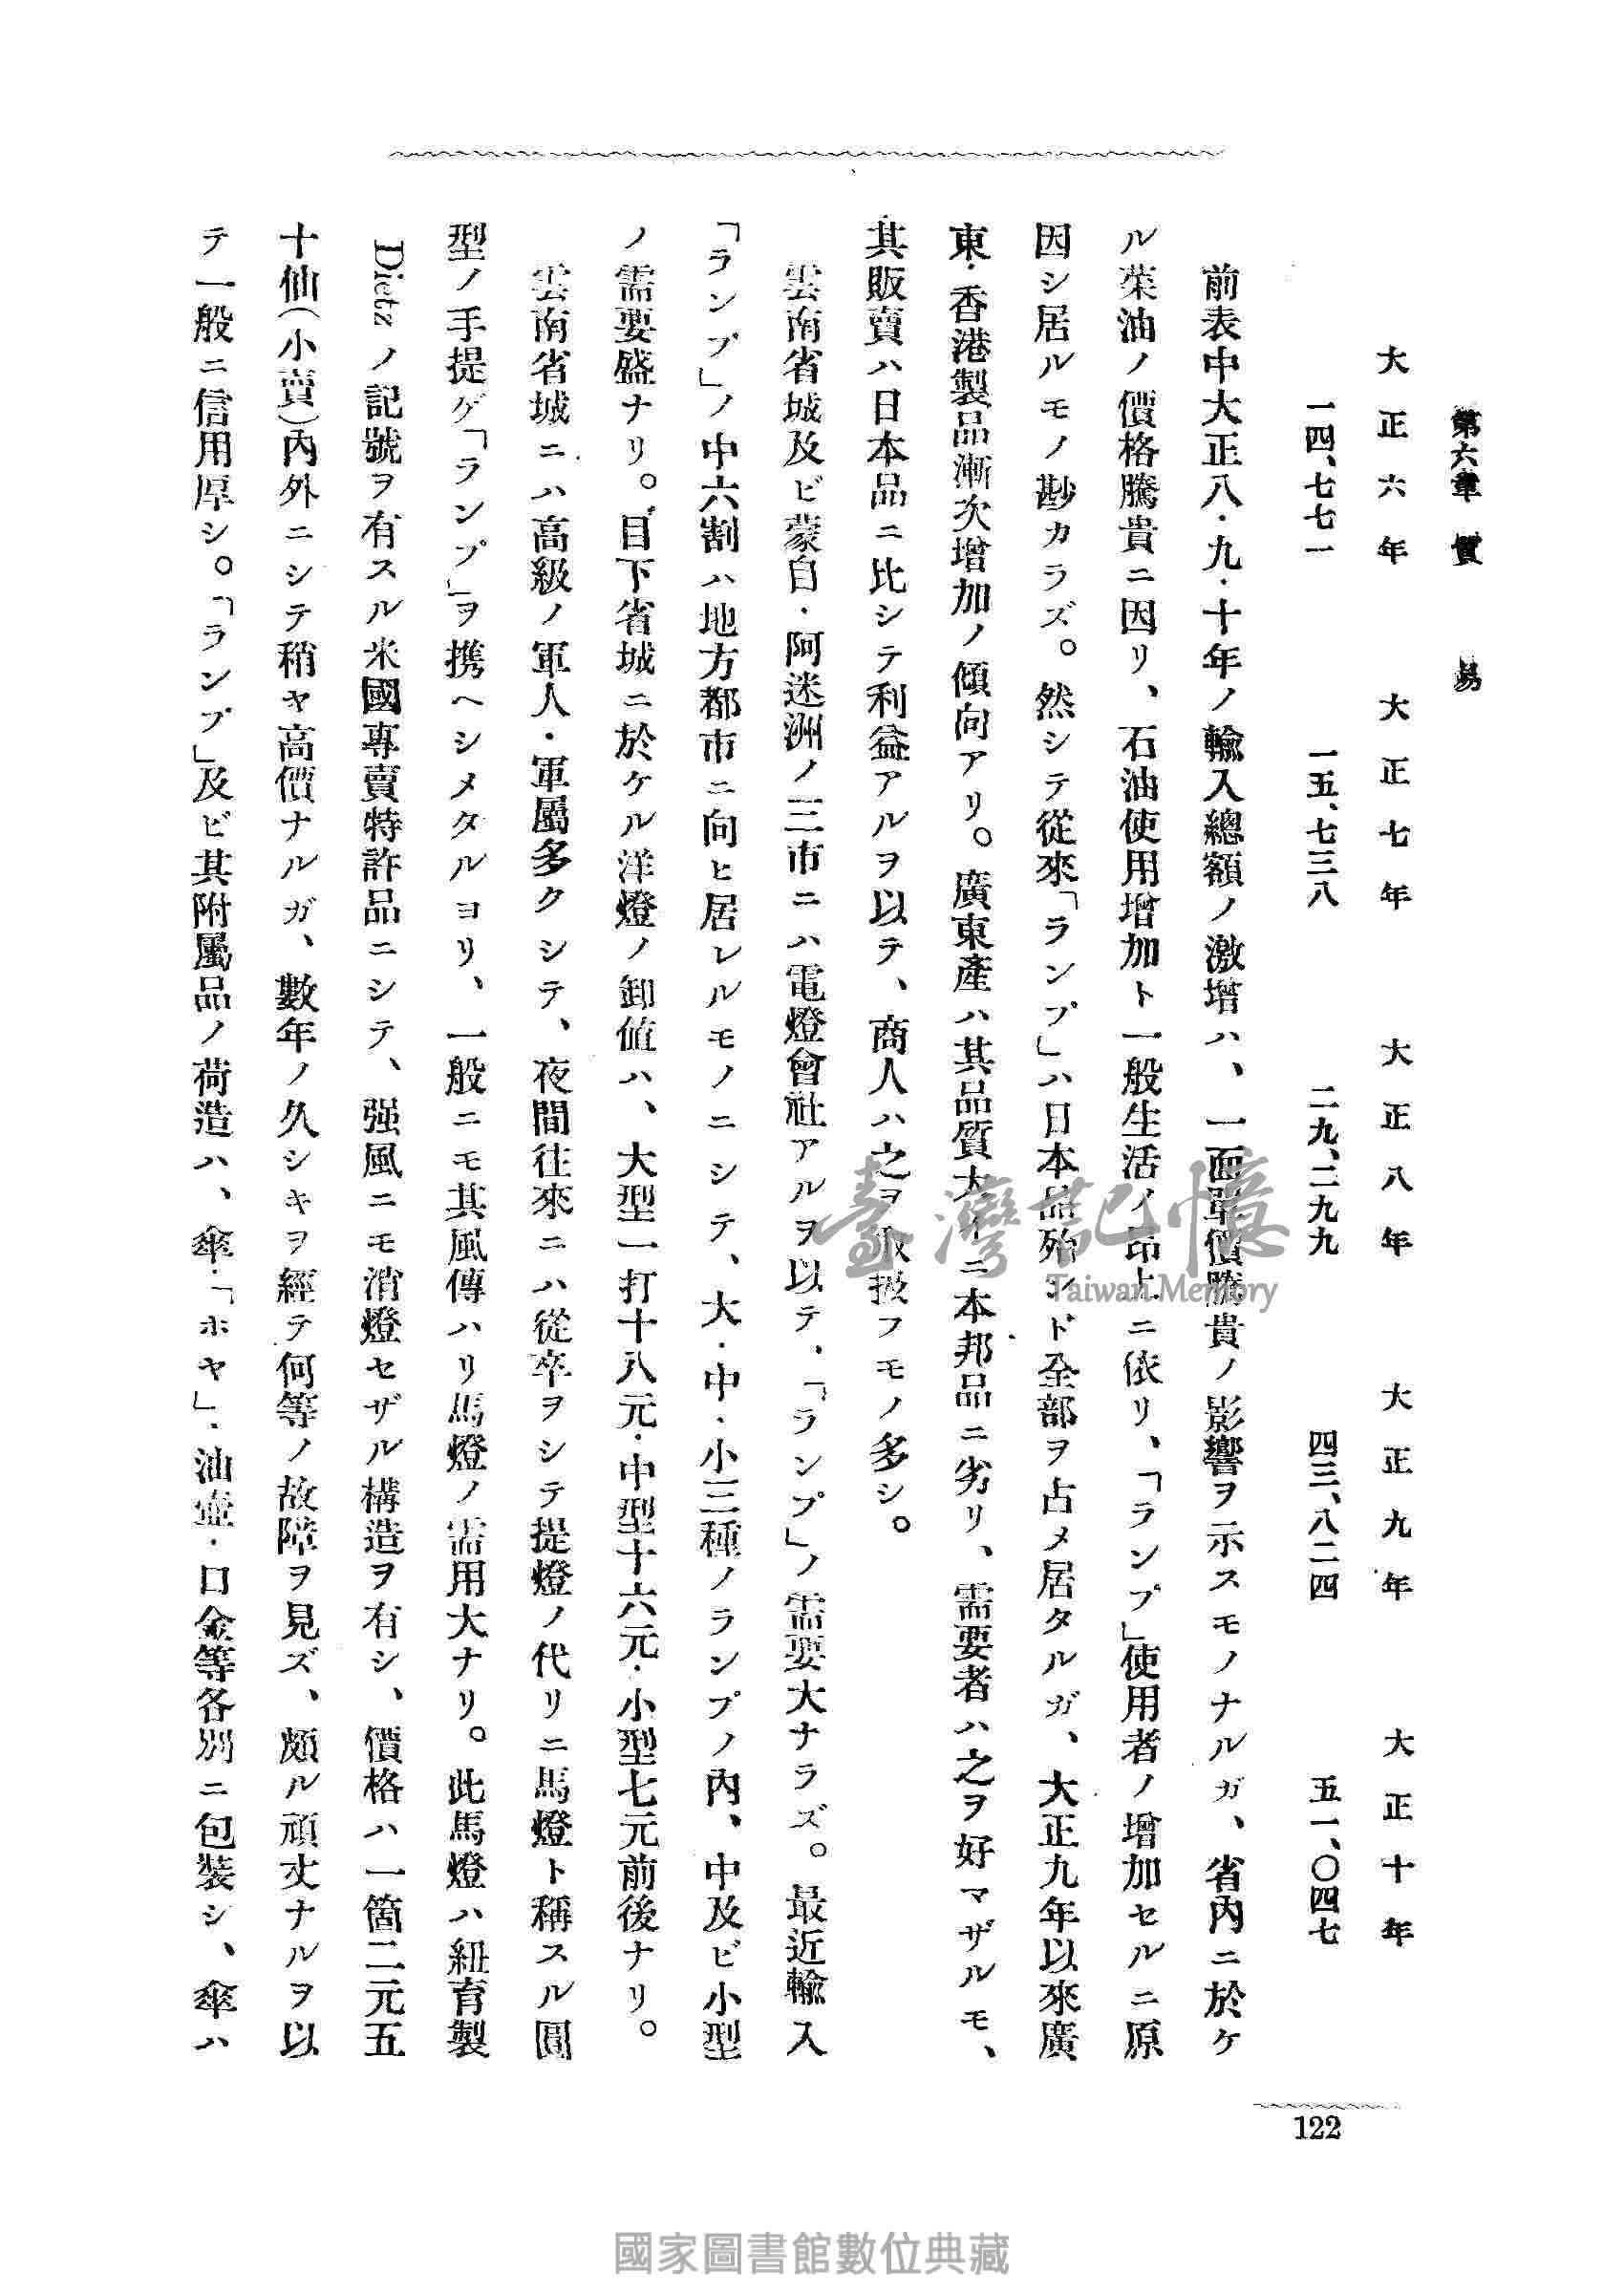 第六章 貿易
大正六年 大正七年 大正八年 大正九年 大正十年
一四、七七一 一五、七三八 二九、二九九 四三、八二四 五一、〇四七
前表中大正八・九・十年ノ輸入總額ノ激增ハ、一面單價騰貴ノ影響ヲ示スモノナルガ、省內ニ於ケ
ル菜油ノ價格騰貴ニ因リ、石油使用增加ト一般生活ノ昂上ニ依リ、「ランプ」使用者ノ增加セルニ原
因シ居ルモノ尠カラズ。然シテ從來「ランプ」ハ日本品殆ンド全部ヲ占メ居タルガ、大正九年以來廣
東・香港製品漸次增加ノ傾向アリ。廣東產ハ其品質大イニ本邦品ニ劣リ、需要者ハ之ヲ好マザルモ、
其販賣ハ日本品ニ比シテ利益アルヲ以テ、商人ハ之ヲ取扱フモノ多シ。
雲南省城及ビ蒙自・阿迷洲ノ三市ニハ電燈會社アルヲ以テ、「ランプ」ノ需要大ナラズ。最近輸入
「ランプ」ノ中六割ハ地方都市ニ向ヒ居レルモノニシテ、大・中・小三種ノランプノ內、中及ビ小型
ノ需要盛ナリ。目下省城ニ於ケル洋燈ノ卸值ハ、大型一打十八元・中型十六元・小型七元前後ナリ。
雲南省城ニハ高級ノ軍人・軍屬多クシテ、夜間往來ニハ從卒ヲシテ提燈ノ代リニ馬燈ト稱スル圓
型ノ手提ゲ「ランプ」ヲ携ヘシメタルヨリ、一般ニモ其風傳ハリ馬燈ノ需用大ナリ。此馬燈ハ紐育製
Dietz ノ記號ヲ有スル米國專賣特許品ニシテ、强風ニモ消燈セザル構造ヲ有シ、價格ハ一箇二元五
十仙(小賣)內外ニシテ稍ヤ高價ナルガ、數年ノ久シキヲ經テ何等ノ故障ヲ見ズ、頗ル頑丈ナルヲ以
テ一般ニ信用厚シ。「ランプ」及ビ其附屬品ノ荷造ハ、傘・「ホヤ」・油壺・口金等各別ニ包裝シ、傘ハ
122
臺灣記憶
Taiwan Memory
國家圖書館數位典藏